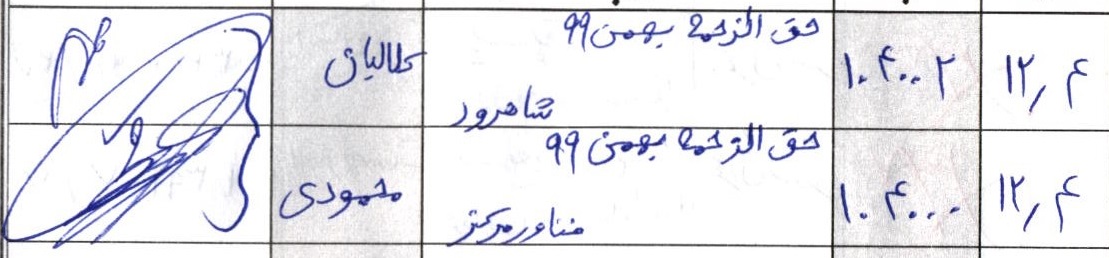 ۱۲٫۴ ۱۰۴۰۰۲ حق الزحمه بهمن ۹۹ طالبان
شاهرود
۱۲٫۴ ۱۰۴۰۰۰ حق الزحمه بهمن ۹۹ محمودی
فناور مرکز